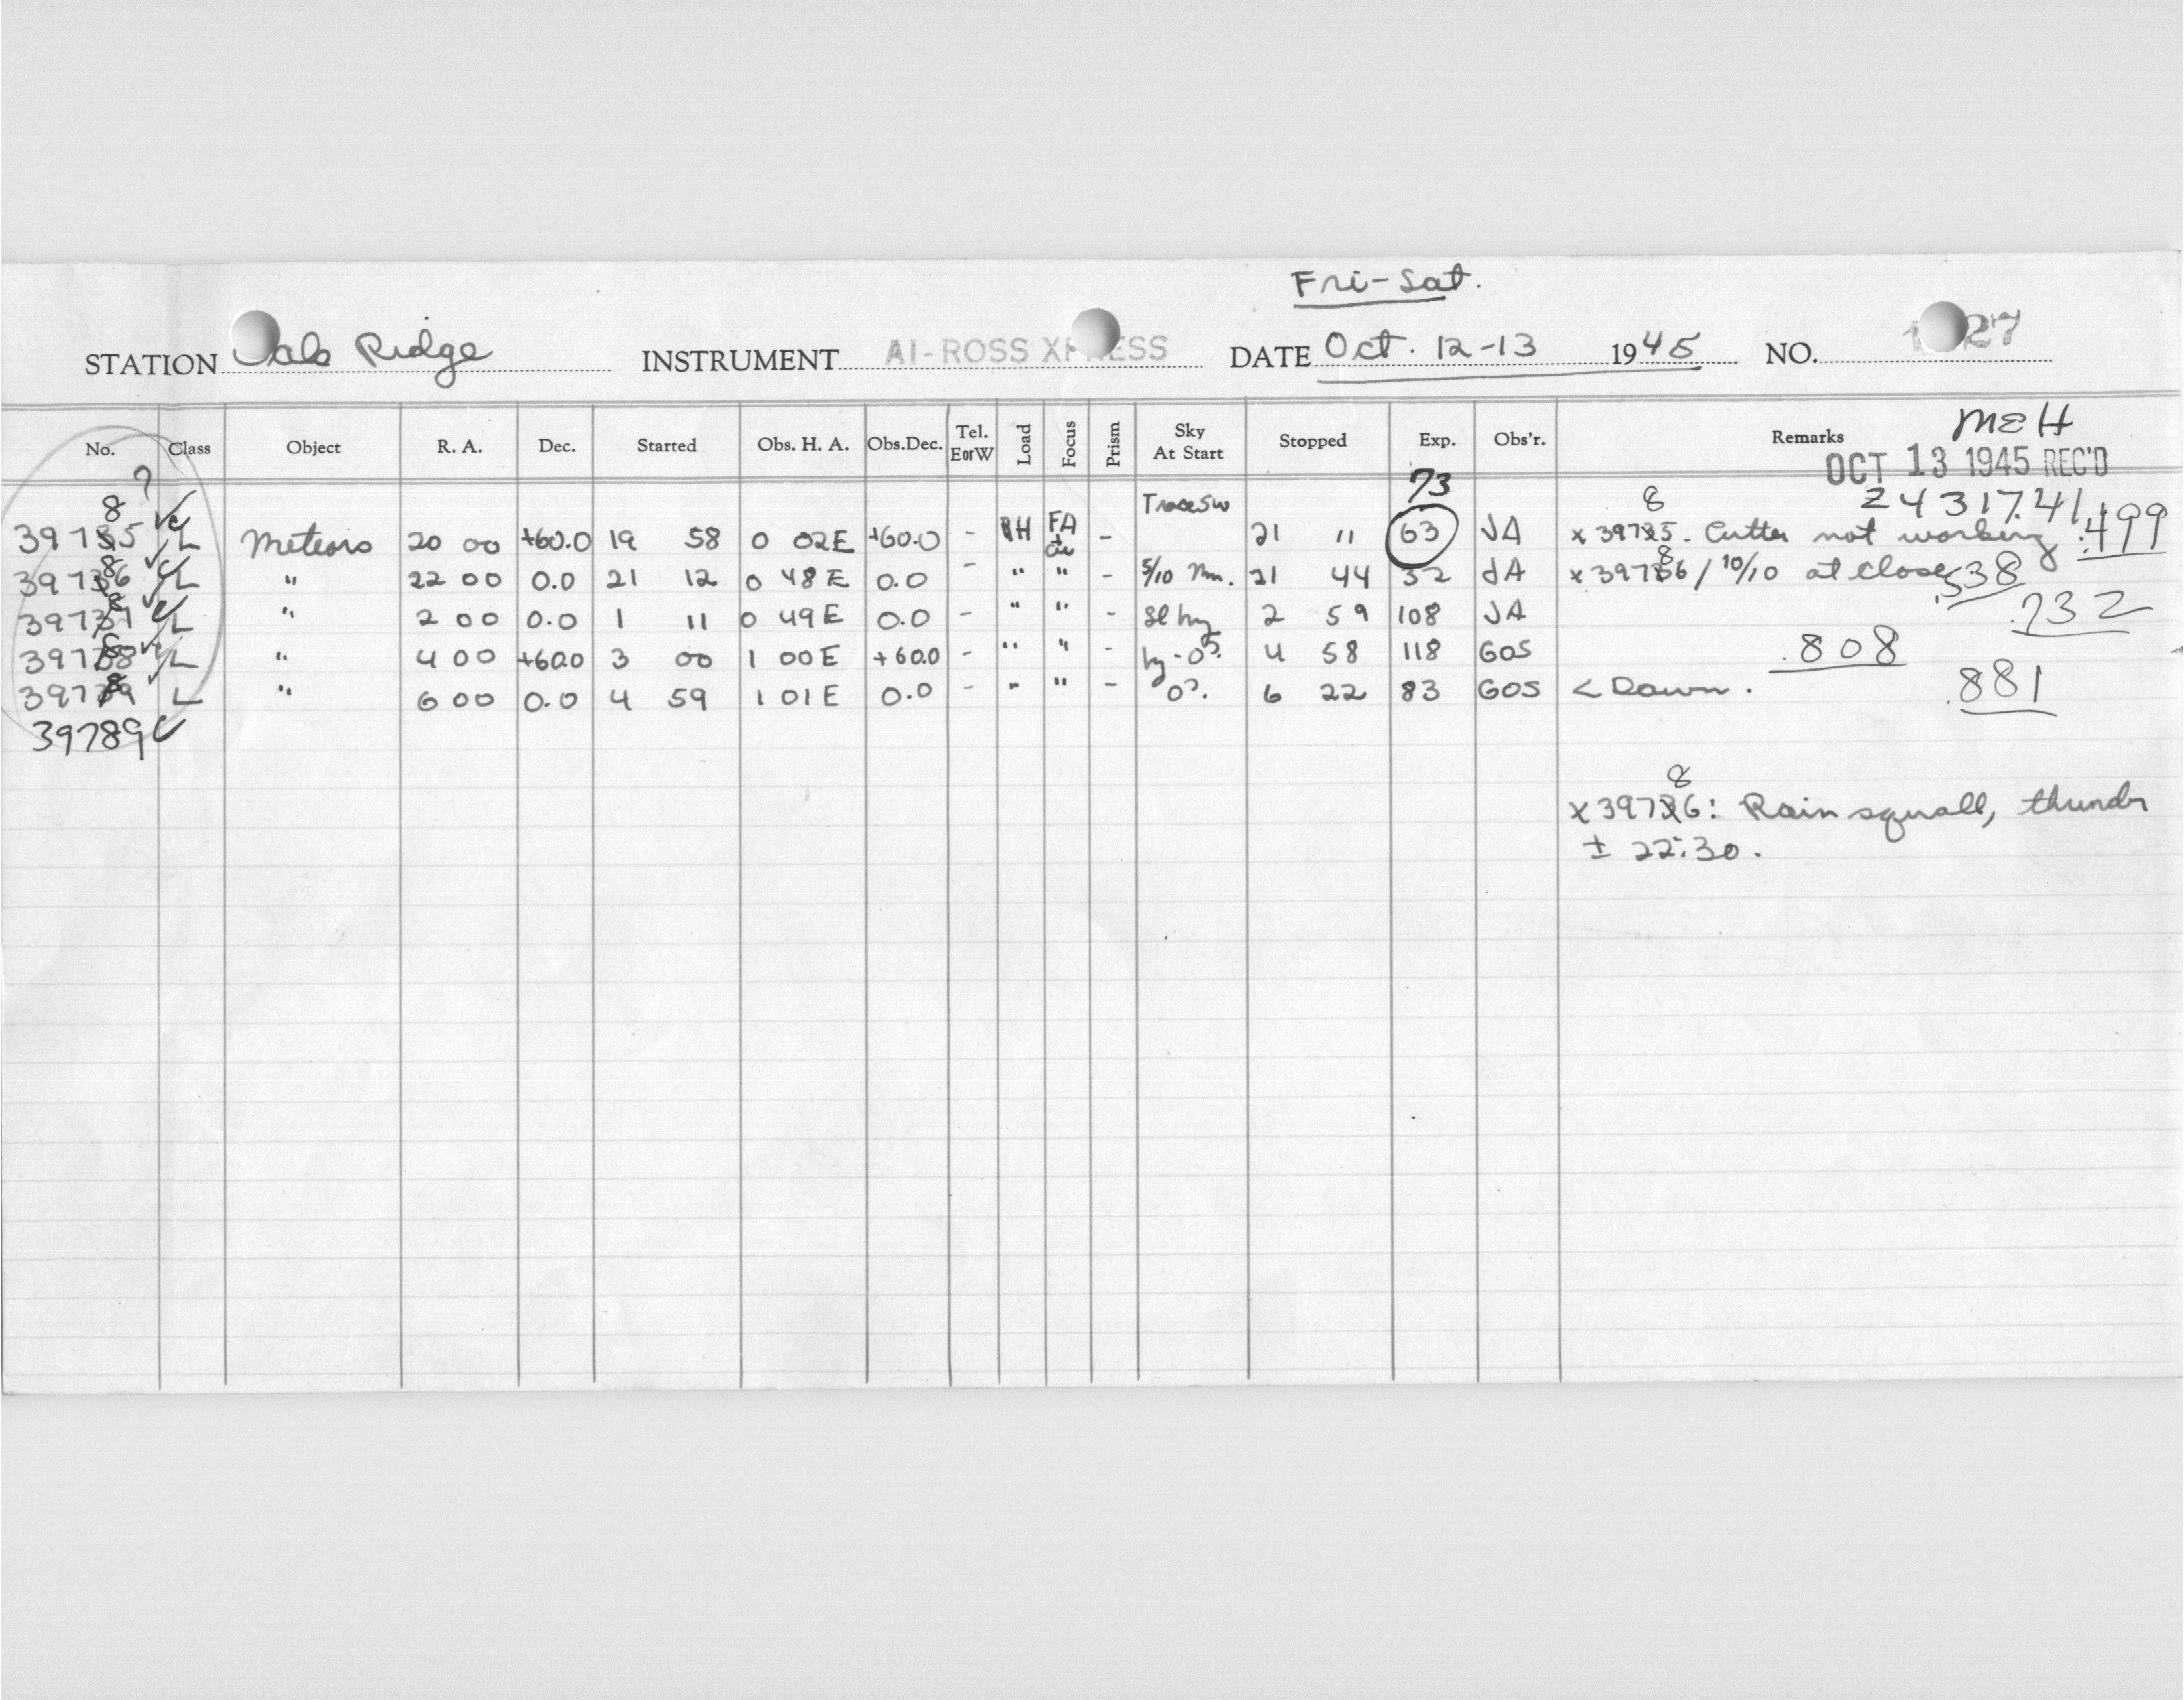 Fri-Sat.
STATION Oak Ridge INSTRUMENT AI-ROSS XPRESS DATE Oct. 12-13 1945 NO. 27
No. Class Object R. A. Dec. Started Obs. H. A. Obs.Dec. Tel. E or W Load Focus Prism Sky At Start Stopped Exp. Obs'r. Remarks MEH
OCT 13 1945 REC'D
? 8 73 8 24317.41
39785 L Meteors 20 00 +60.0 19 58 0 02E +60.0 - FA - 21 11 63 JA x 39785. Cutter not working .499
39786 L " 22 00 0.0 21 12 0 48E 0.0 - " " - 5/10 21 44 32 JA x 39786 / 10/10 at close .538
39787 L " 2 00 0.0 1 11 0 49E 0.0 - " " - Sl hzy 2 59 108 JA .732
39788 L " 4 00 +60.0 3 00 1 00E +60.0 - " " - hy - 4 58 118 GOS .808
39789 L " 6 00 0.0 4 59 1 01E 0.0 - " " - 6 22 83 GOS < Dawn. .881
39789
8
x 39786: Rain squall, thunder
± 22:30.